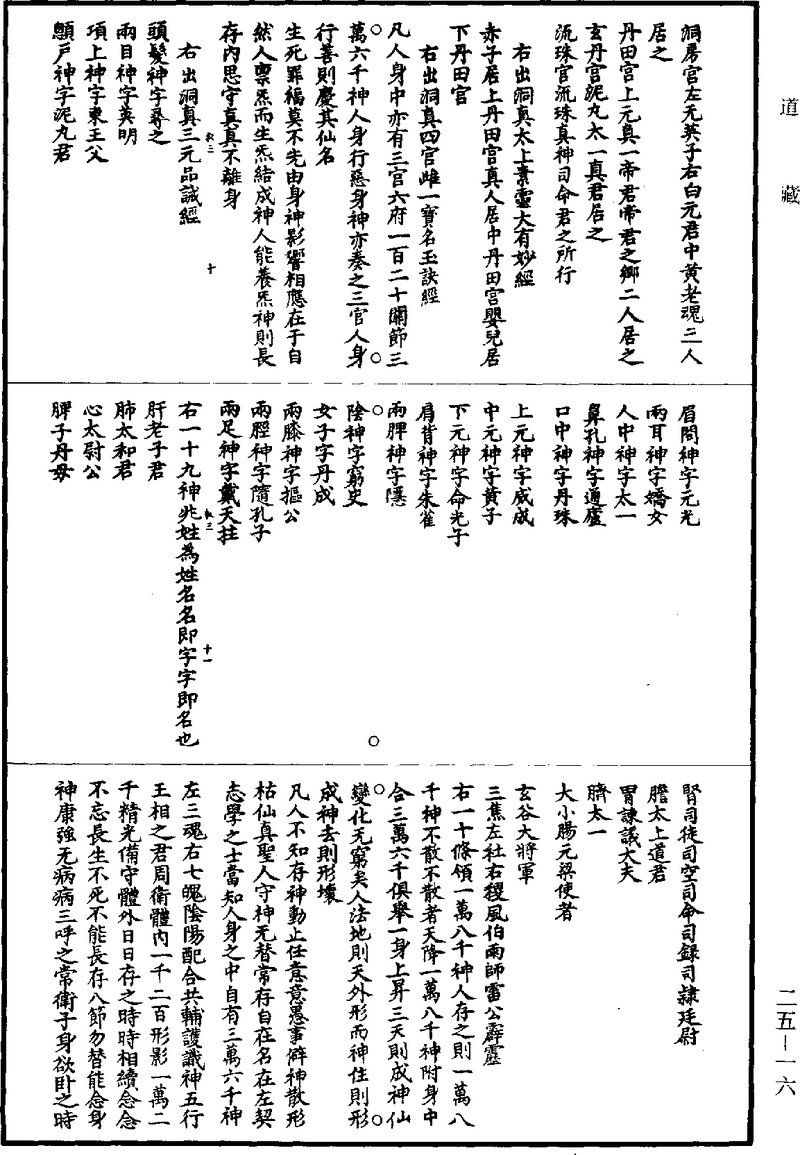 道藏
洞房宫左无英子右白元君中黄老魂三人
居之
丹田宫上元真一帝君帝君之郷二人居之
玄丹宫泥丸太一真君居之
流珠宫流珠真神司命君之所行
右出洞真太上素靈大有妙經
赤子居上丹田宫真人居中丹田宫嬰兒居
下丹田宫
右出洞真四宫雌一寳名玉訣經
凡人身中亦有三宫六府一百二十關節三
萬六千神人身行惡身神亦奏之三官人身
行善則慶其仙名
生死罪福莫不先由身神影響相應在于自
然人禀炁而生炁結成神人能養炁神則長
存内思守真真不離身
右出洞真三元品誡經
十
頭髮神字尋之
兩目神字英明
項上神字東王父
顖户神字泥丸君
眉間神字元光
兩耳神字嬌女
人中神字太一
鼻孔神字通廬
口中神字丹珠
上元神字威成
中元神字黄子
下元神字命光子
肩背神字朱雀
兩脾神字隱
陰神字窮史
女子字丹成
兩膝神字摳公
兩脛神字隨孔子
兩足神字戴天拄
右一十九神兆姓為姓名名即字字即名也
十一
肝老子君
肺太和君
心太尉公
脾子丹母
腎司徒司空司命司録司隷廷尉
膽太上道君
胃諫議大夫
臍太一
大小腸元梁使者
玄谷大將軍
三焦左社右稷風伯雨師雷公霹靂
右一十條領一萬八千神人存之則一萬八
千神不散不散者天降一萬八千神附身中
合三萬六千俱舉一身上昇三天則成神仙
變化无窮矣人法地則天外形而神住則形
成神去則形壞
凡人不知存神動止任意意愚事僻神散形
枯仙真聖人守神无替常存自在名在左契
志學之士當知人身之中自有三萬六千神
左三魂右七魄陰陽配合共輔護識神五行
王相之君周衛體内一千二百形影一萬二
千精光備守體外日日存之時時相續念念
不忘長生不死不能長存八節勿替能念身
神康強无病病三呼之常衛子身欲卧之時
二五—一六